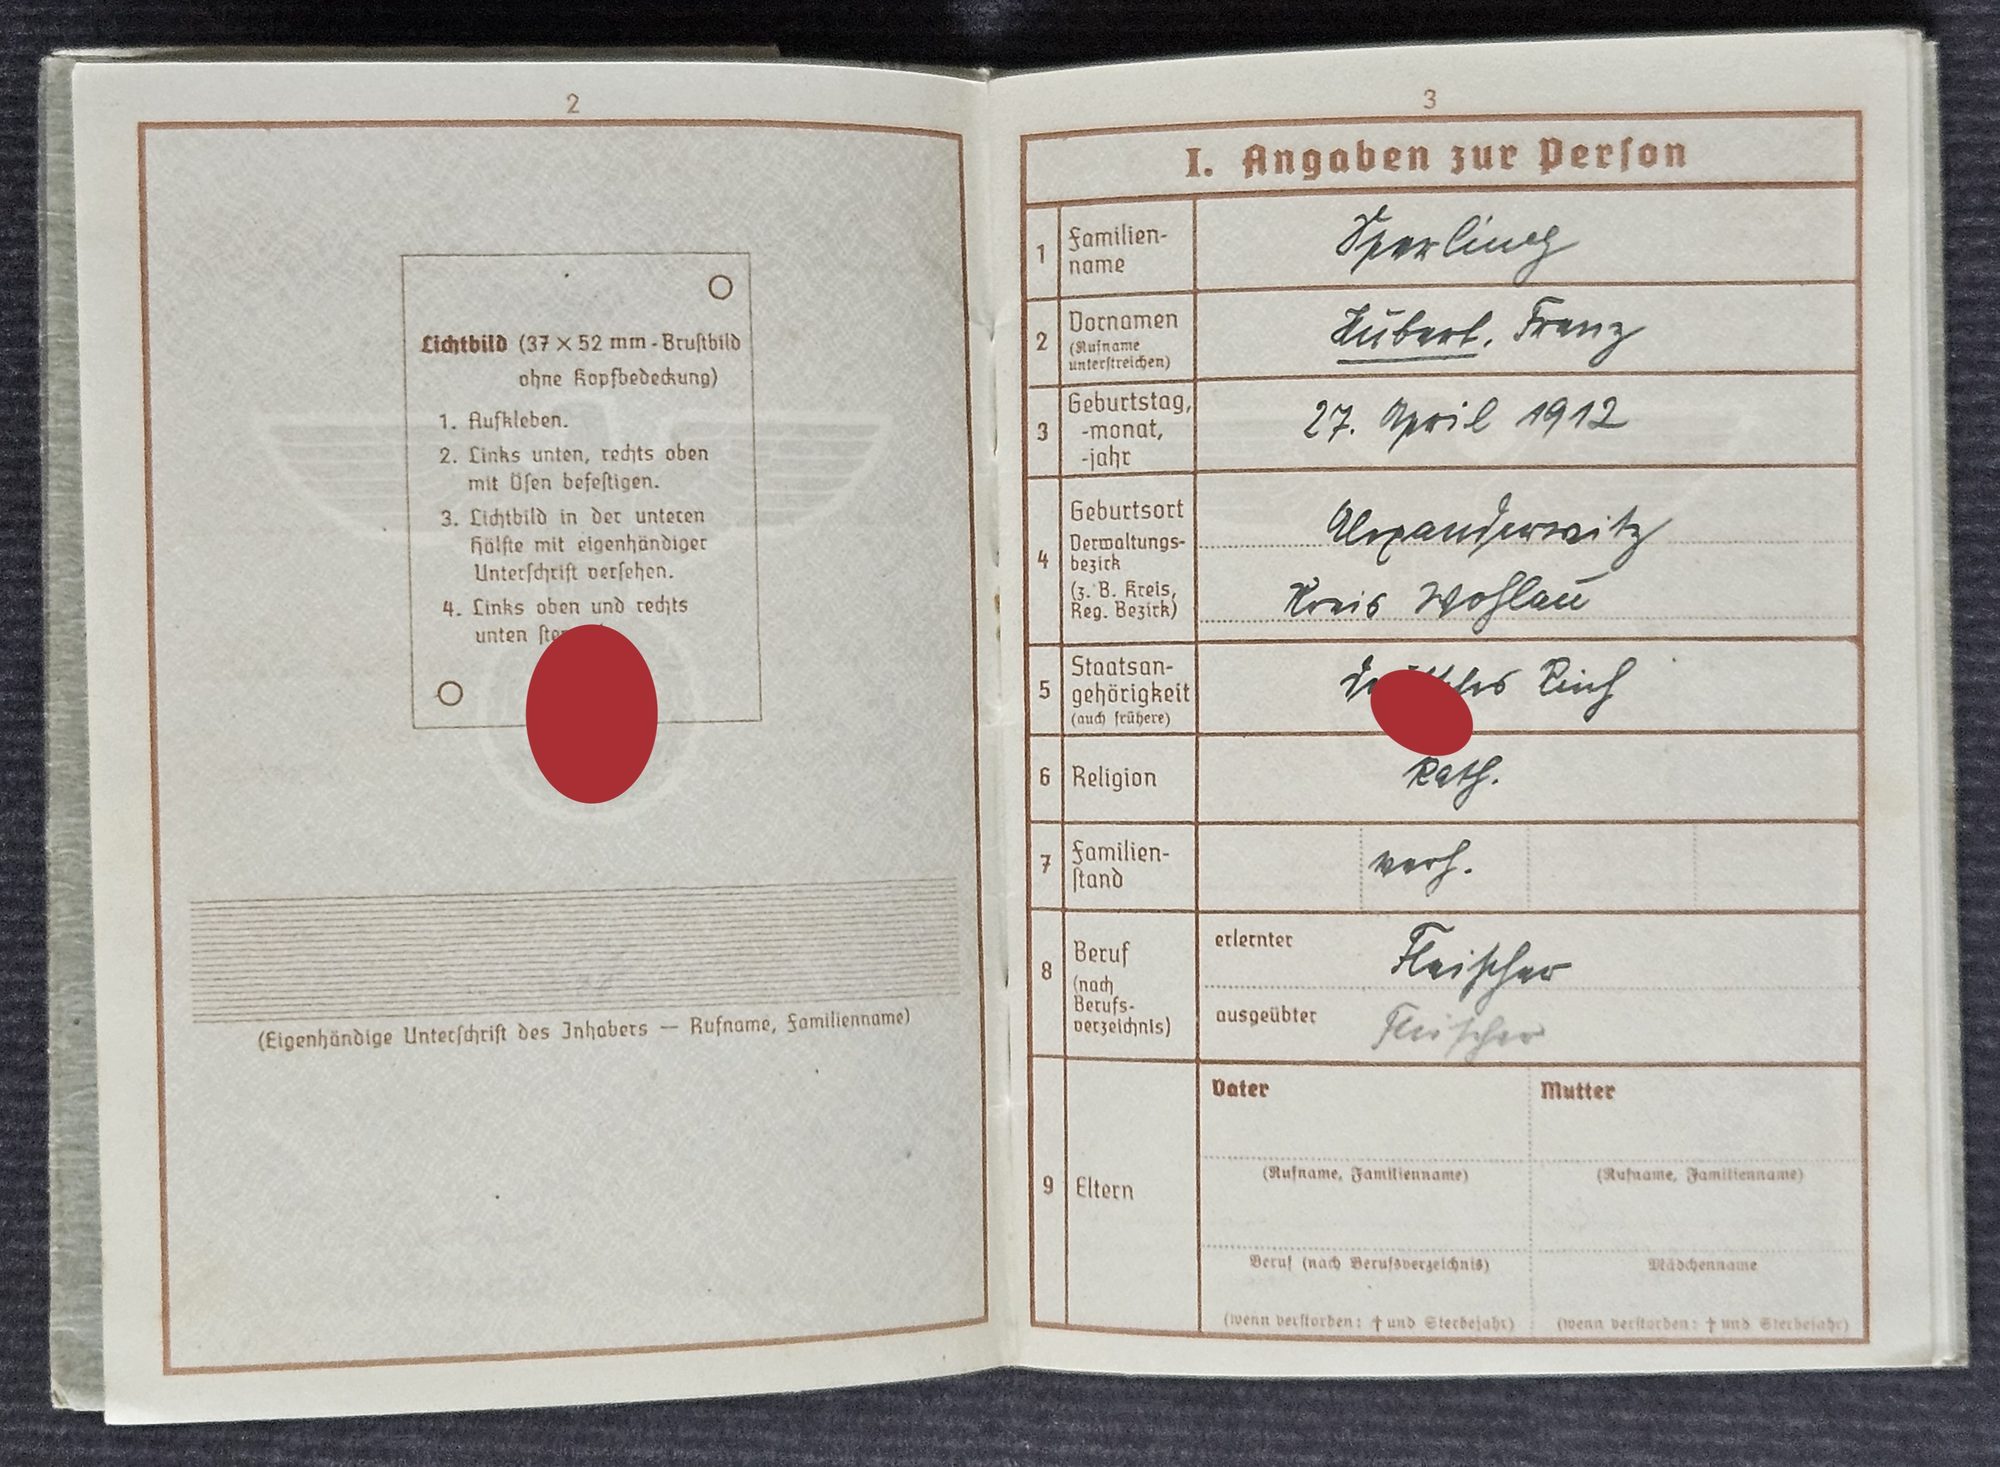 2
Lichtbild (37 × 52 mm - Brustbild
ohne Kopfbedeckung)
1. Aufkleben.
2. Links unten, rechts oben
mit Ösen befestigen.
3. Lichtbild in der unteren
Hälfte mit eigenhändiger
Unterschrift versehen.
4. Links oben und rechts
unten
(Eigenhändige Unterschrift des Inhabers — Rufname, Familienname)
3
I. Angaben zur Person
1 Familien-
name
Sperling
2 Vornamen
(Rufname
unterstreichen)
Hubert, Franz
3 Geburtstag,
-monat,
-jahr
27. April 1912
4 Geburtsort
Verwaltungs-
bezirk
(z. B. Kreis,
Reg. Bezirk)
Alexanderwitz
Kreis Wohlau
5 Staatsan-
gehörigkeit
(auch frühere)
Reich
6 Religion
Kath.
7 Familien-
stand
verh.
8 Beruf
(nach
Berufs-
verzeichnis)
erlernter Fleischer
ausgeübter Fleischer
9 Eltern
Vater Mutter
(Rufname, Familienname) (Rufname, Familienname)
Beruf (nach Berufsverzeichnis) Mädchenname
(wenn verstorben: † und Sterbejahr) (wenn verstorben: † und Sterbejahr)